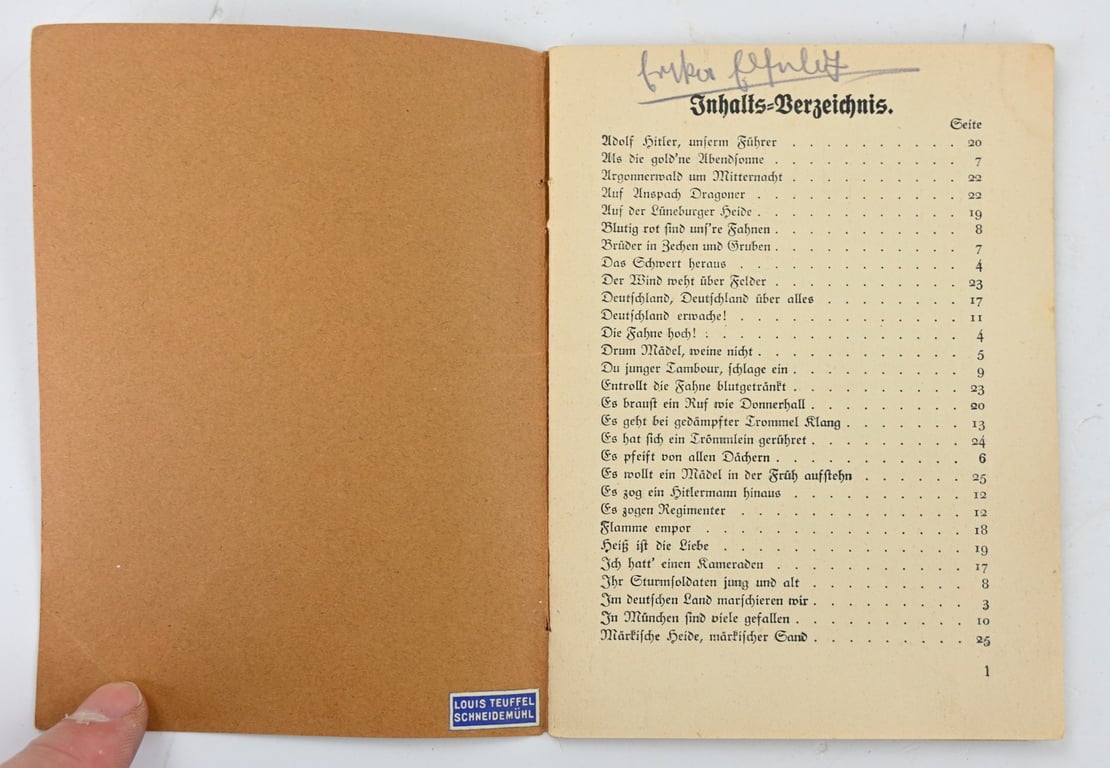 LOUIS TEUFFEL
SCHNEIDEMÜHL
Erika
Inhalts-Verzeichnis.
Seite
Adolf Hitler, unserm Führer . . . . . . . . . . 20
Als die gold'ne Abendsonne . . . . . . . . . . . 7
Argonnerwald um Mitternacht . . . . . . . . . . 22
Auf Anspach Dragoner . . . . . . . . . . . . 22
Auf der Lüneburger Heide . . . . . . . . . . . . 19
Blutig rot sind uns're Fahnen . . . . . . . . . . . 8
Brüder in Zechen und Gruben . . . . . . . . . . . 7
Das Schwert heraus . . . . . . . . . . . . . 4
Der Wind weht über Felder . . . . . . . . . . . 23
Deutschland, Deutschland über alles . . . . . . . . 17
Deutschland erwache! . . . . . . . . . . . . . 11
Die Fahne hoch! . . . . . . . . . . . . . . 4
Drum Mädel, weine nicht . . . . . . . . . . . . 5
Du junger Tambour, schlage ein . . . . . . . . . . 9
Entrollt die Fahne blutgetränkt . . . . . . . . . . 23
Es braust ein Ruf wie Donnerhall . . . . . . . . . 20
Es geht bei gedämpfter Trommel Klang . . . . . . . 13
Es hat sich ein Trömmlein gerühret . . . . . . . . . 24
Es pfeift von allen Dächern . . . . . . . . . . . 6
Es wollt ein Mädel in der Früh aufstehn . . . . . . 25
Es zog ein Hitlermann hinaus . . . . . . . . . . 12
Es zogen Regimenter . . . . . . . . . . . . . 12
Flamme empor . . . . . . . . . . . . . . 18
Heiß ist die Liebe . . . . . . . . . . . . . 19
Ich hatt' einen Kameraden . . . . . . . . . . . 17
Ihr Sturmsoldaten jung und alt . . . . . . . . . 8
Im deutschen Land marschieren wir . . . . . . . . . 3
In München sind viele gefallen . . . . . . . . . . 10
Märkische Heide, märkischer Sand . . . . . . . . . 25
1